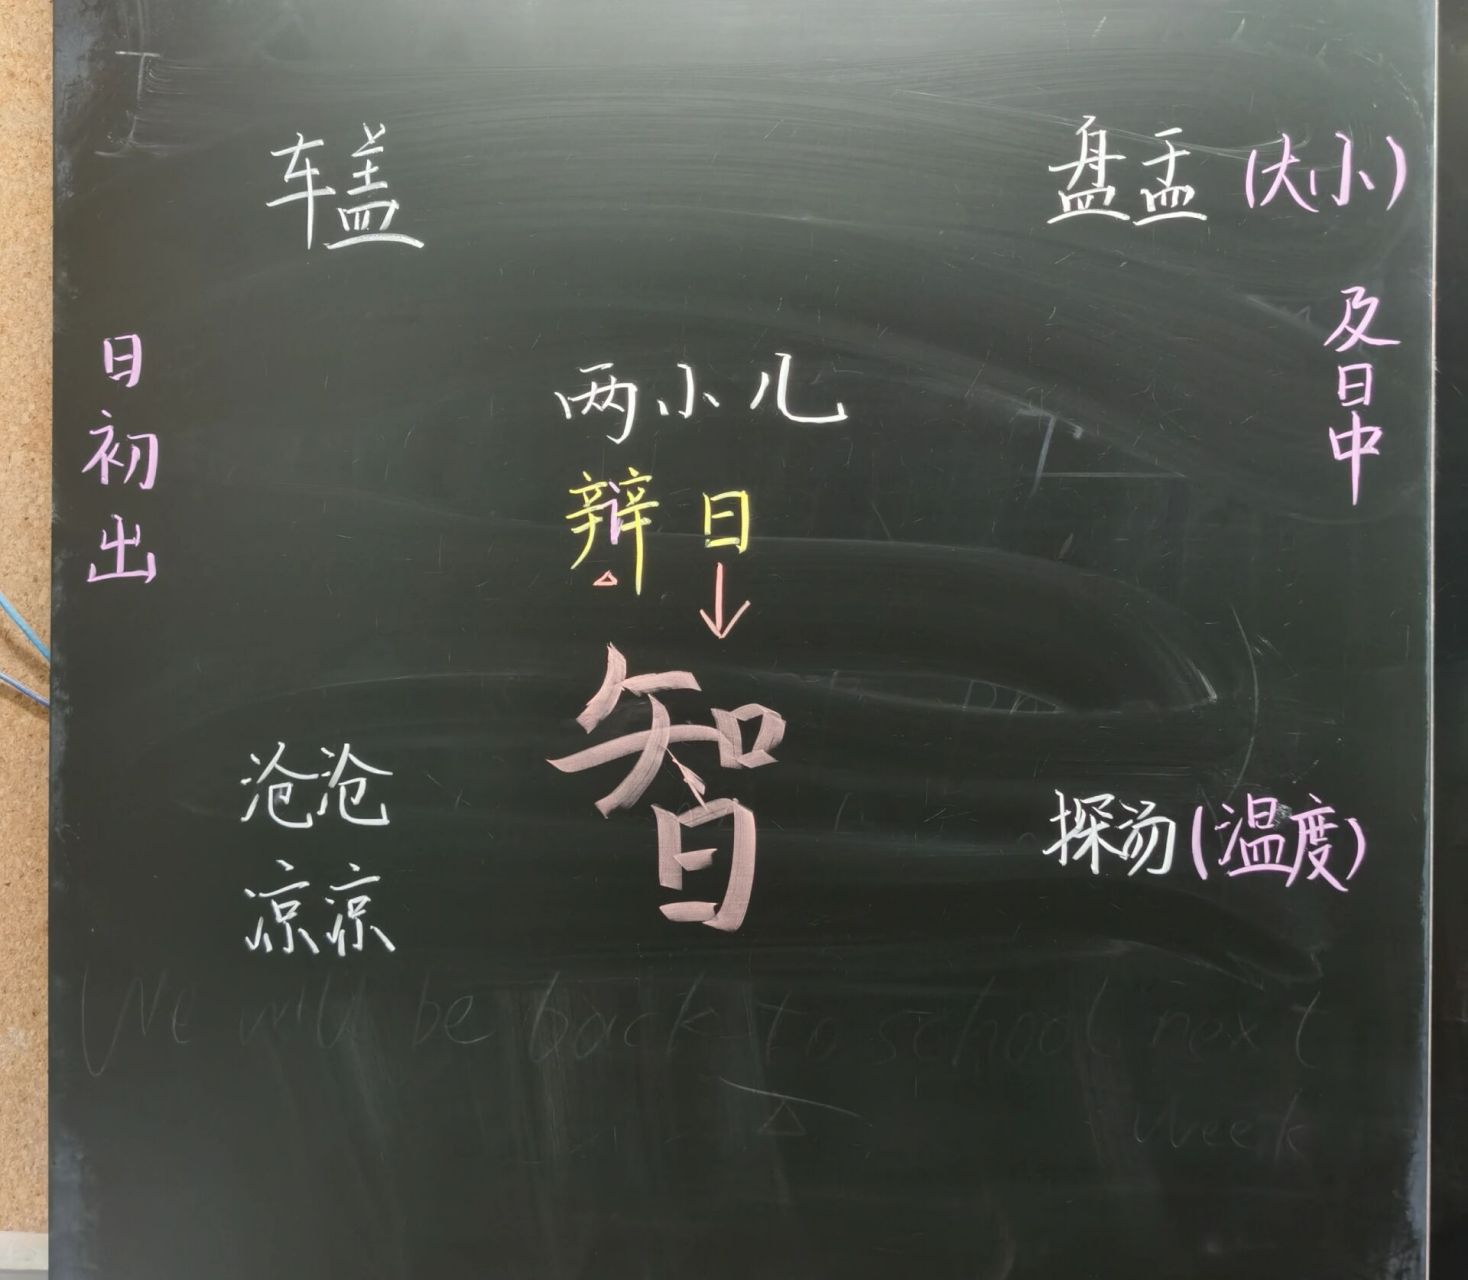 车盖
盘盂(大小)
日初出
及日中
两小儿
辩日
智
沧沧
凉凉
探汤(温度)
We will be back to school next
week